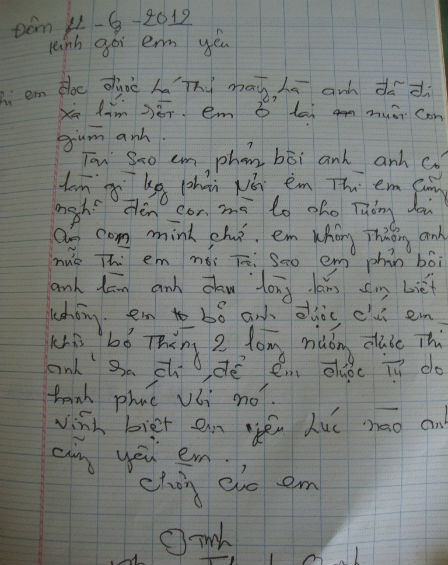 Đêm 11-6-2012
kính gởi em yêu
khi em đọc được lá Thư này là anh đã đi
xa lắm rồi. em ở lại nuôi con
giùm anh.
Tại sao em phản bội anh anh có
làm gì kg phải với em Thì em cũng
nghĩ đến con mà lo cho Tương lai
của con mình chứ. em không Thương anh
nữa Thì em nói Tại sao em phản bội
anh làm anh đau lòng lắm em biết
không. em bỏ anh được chứ em
khó bỏ Thằng 2 lòng nướng được Thì
anh ra đi để em được Tự do
hạnh phúc với nó.
vĩnh biệt em yêu lúc nào anh
cũng yêu em.
chồng của em